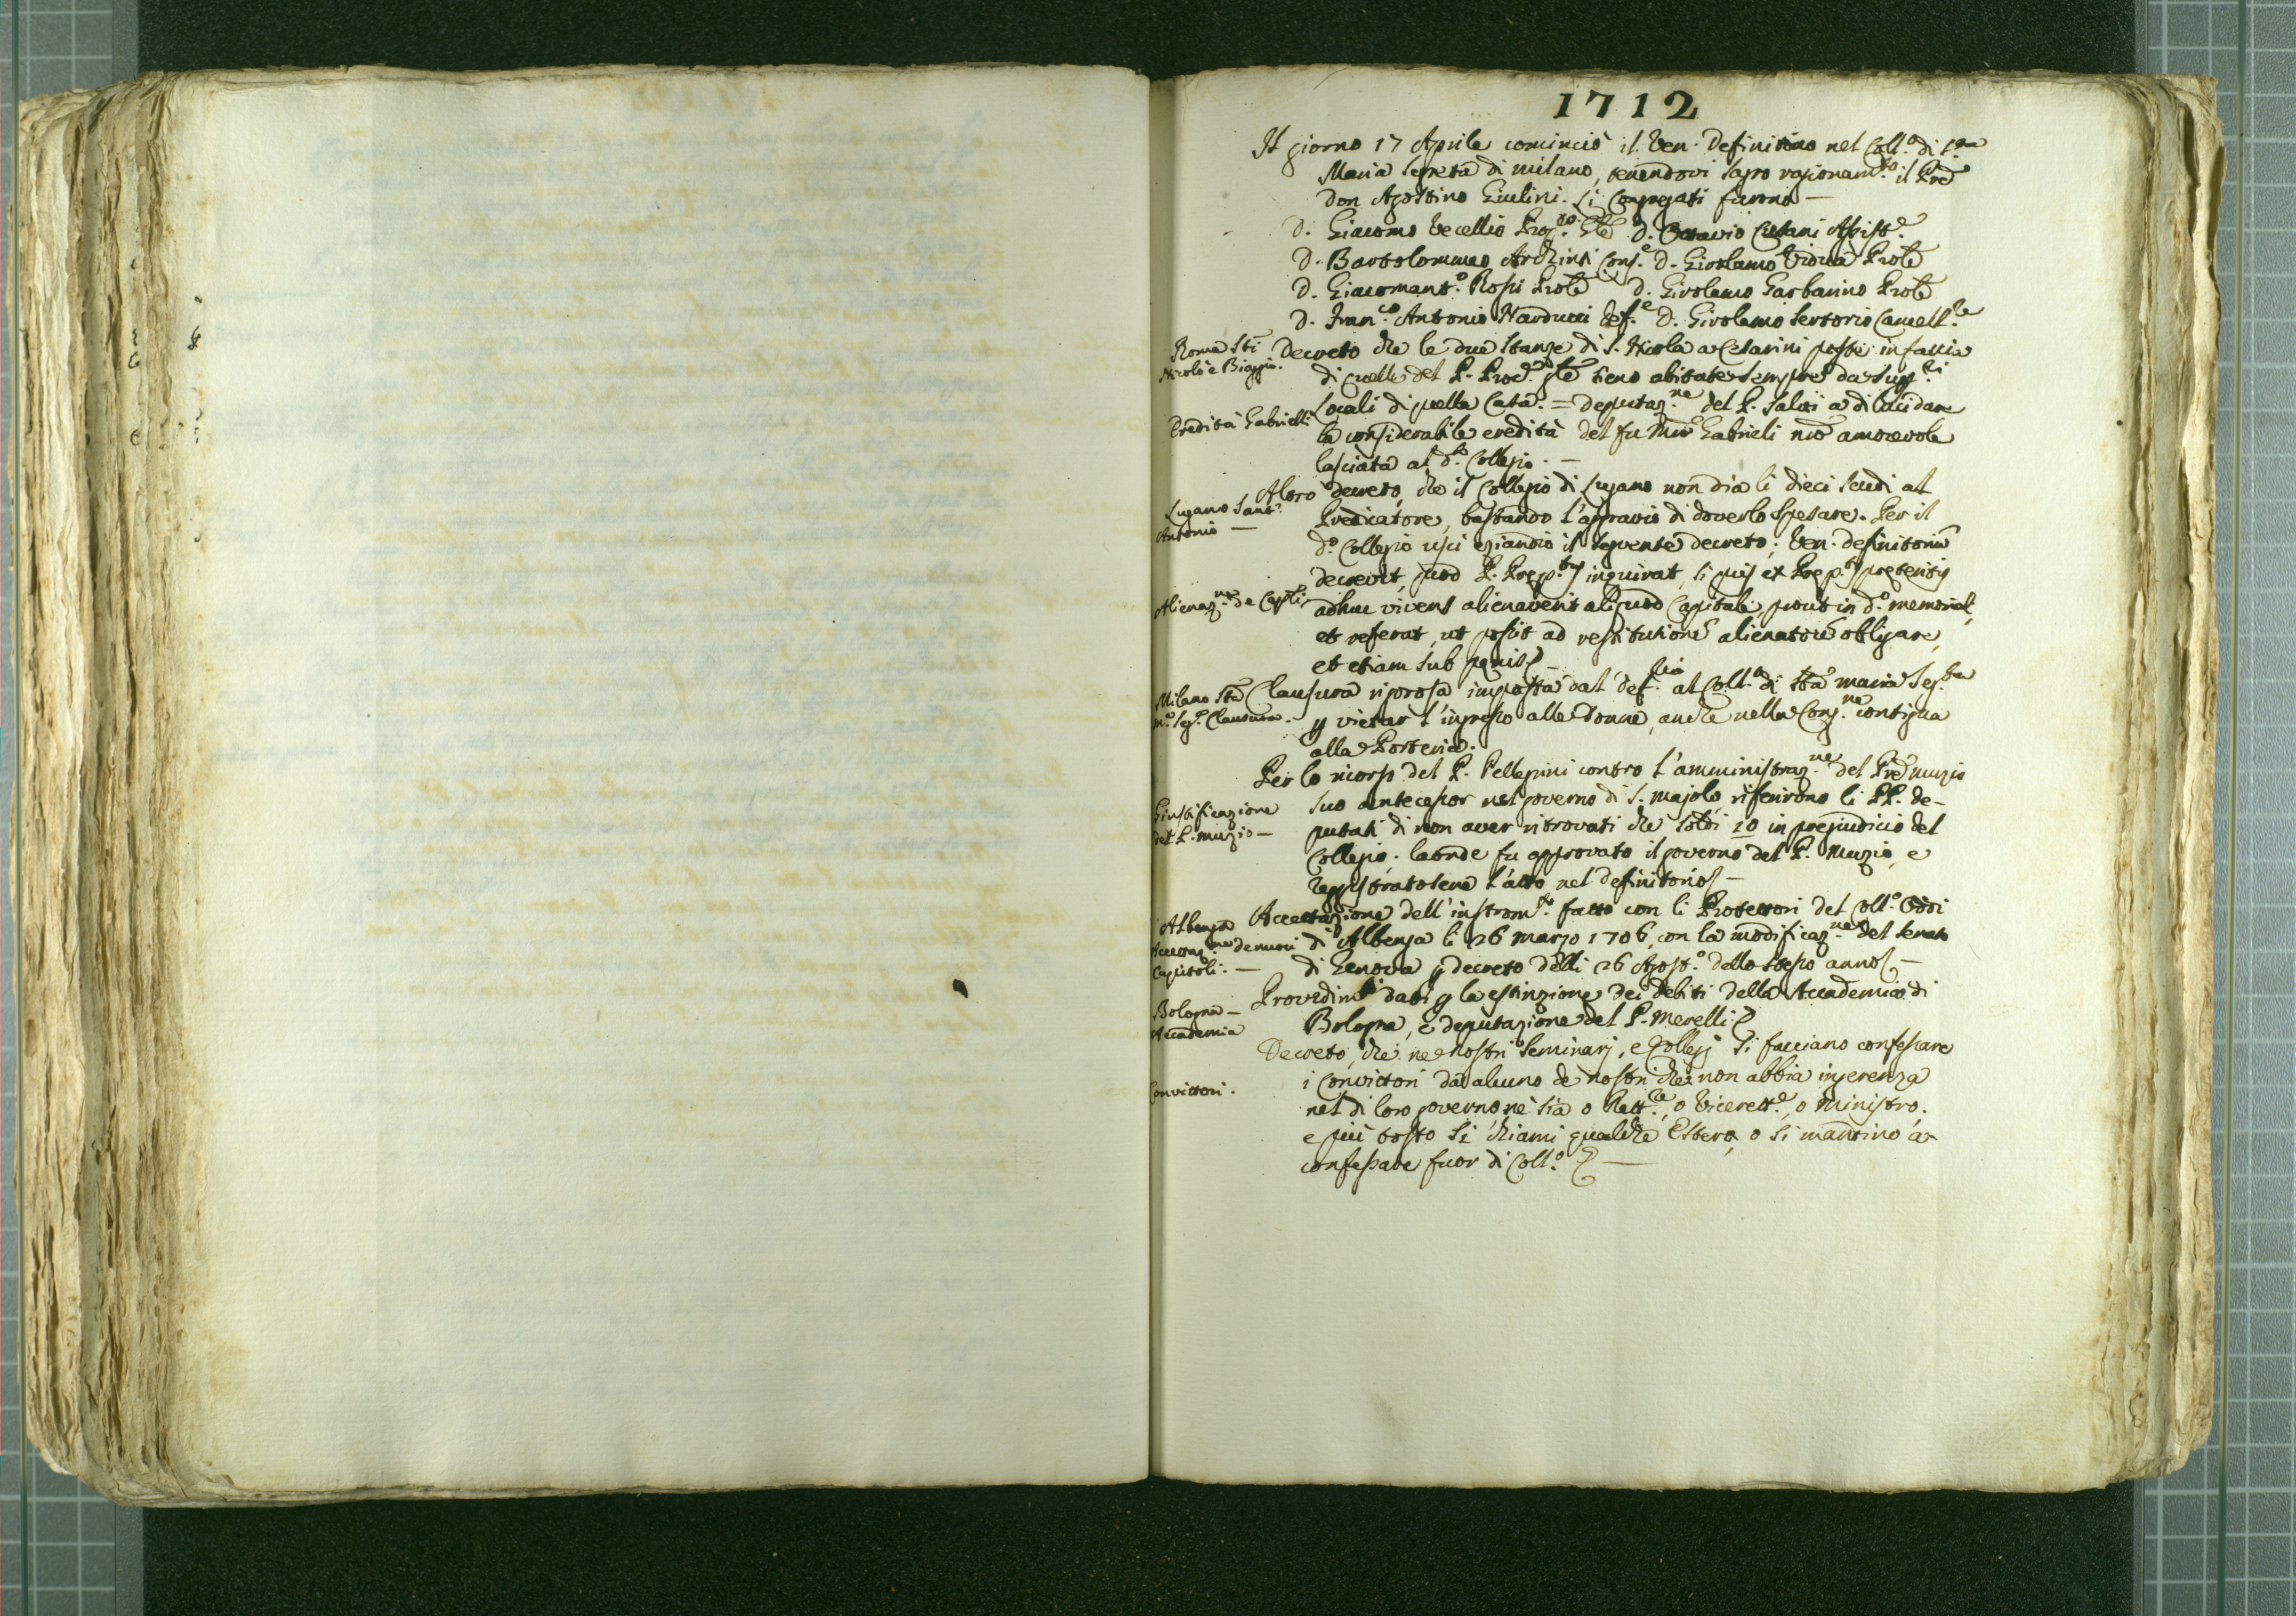 1712
Il giorno 17 Aprile cominciò il Ven. Definitorio nel Coll.o di S.ta
Maria Segreta di milano, tenendovi sagro ragionam.to il Pre
don Agostino Giulini. Li Congregati furono —
D. Giacomo Vecellio D. Ottavio Cusani Assist.e
D. Bartolommeo Archinti Cons.e D. Girolamo Vidua Prole
D. Giacomant.o Rossi Prole D. Girolamo Garbarino Prole
D. Fran.co Antonio Narducci Def.e D. Girolamo Sertorio Cancell.re
Roma Sti
Nicolò e Biaggio.
Decreto che le due stanze di S. Nicola a Cesarini poste in faccia
di quelle del P. Proc. Gle sieno abitate sempre da Supp.ri
Eredità Gabrielli
Locali di quella Casa. = deputaz.ne del P. Salvi a dilucidare
la considerabile eredità del fu Gabrieli nro amorevole
lasciata al d.o Collegio. —
Lugano Sant'
Antonio —
Altro decreto, che il Collegio di Lugano non dia li dieci scudi al
Predicatore, bastando l'aggravio di doverlo spesare. Per il
d.o Collegio uscì eziandio il seguente decreto; Ven. definitoriũ
decrevit, quod P. Prep.tus inquirat, si quis ex Prep.tis preteritis
Alienaz.ne de Capli
adhuc vivens alienaverit aliquod Capitale, prout in d.o memorial,
et referat, ut possit ad restitutionẽ alienatorũ obligare,
et etiam sub penis —
Milano Sta
m.a Seg.a Clausura.
Clausura rigorosa imposta dal def.rio al Coll.o di Sta maria Seg.ta
p vietar l'ingresso alle donne, anche nella Cong.ne contigua
alla Porteria.
Per lo ricorso del P. Pellegrini contro l'amministraz.ne del Pre muzio
Giustificazione
del P. muzio —
suo antecessor nel governo di S. majolo, riferirono li PP. de-
putati di non aver ritrovati che soldi 10 in pregiudicio del
Collegio. laonde fu approvato il governo del P. Muzio, e
reggistratosene l'atto nel definitorio —
Albenga
Accettaz.ne de nuovi
Capitoli. —
Accettazione dell'instrom.to fatto con li Protettori del Coll.o Oddi
di Albenga li 26 marzo 1706, con la modificaz.ne del Senato
di Genova p decreto delli 26 Agost.o dello stesso anno —
Bologna —
Accademia
Providim.ti dati p la estinzione dei debiti della Accademia di
Bologna, e deputazione del P. Merelli
Decreto, che ne nostri Seminarj, e Collegj si facciano confessare
Convittori.
i Convittori da alcuno de nostri che non abbia ingerenza
nel di loro governo nè sia o Rett.re, o Vicerett.e, o Ministro.
e più tosto si chiami qualche Estero, o si mandino a
confessare fuor di Coll.o —